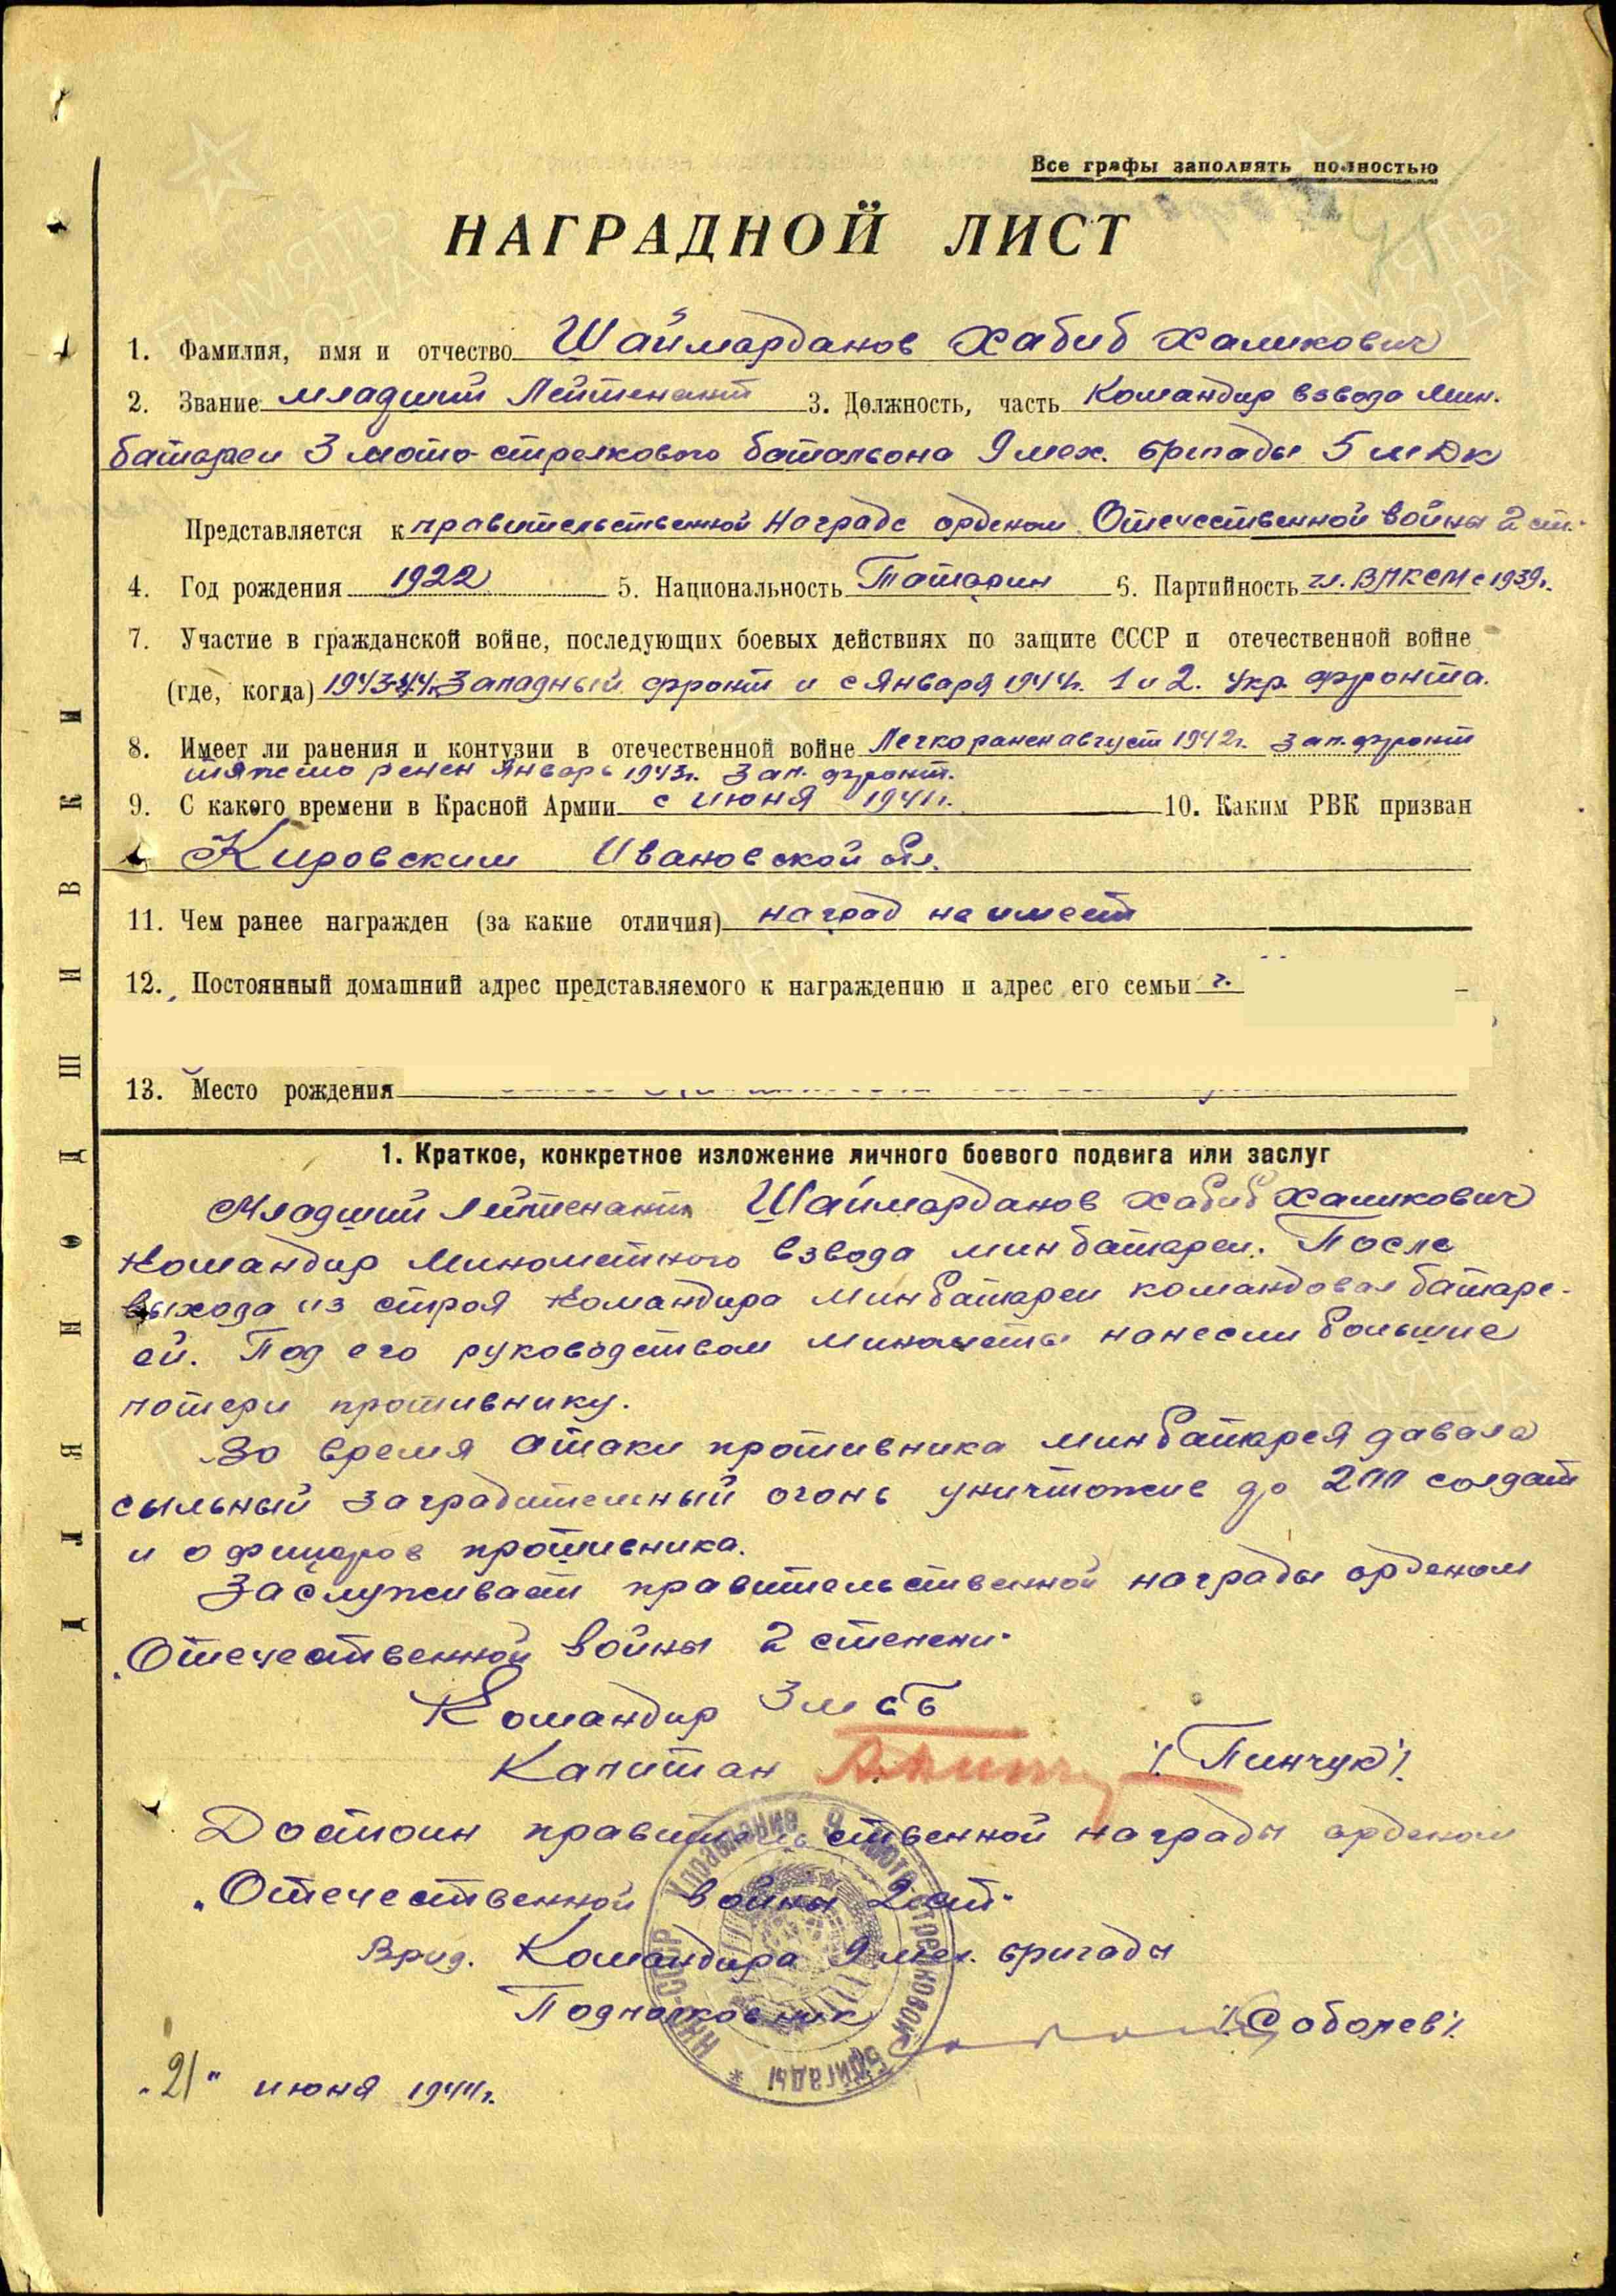 Все графы заполнять полностью
НАГРАДНОЙ ЛИСТ
1. Фамилия, имя и отчество Шаймарданов Хабиб Халикович
2. Звание младший Лейтенант 3. Должность, часть Командир взвода Мин.
батареи 3 мото-стрелкового батальона 9 мех. бригады 5 мДк
Представляется к правительственной Награде орденом Отечественной войны 2 ст.
4. Год рождения 1922 5. Национальность Татарин 6. Партийность чл. ВЛКСМ с 1939г.
7. Участие в гражданской войне, последующих боевых действиях по защите СССР и отечественной войне
(где, когда) 1943-44г. Западный фронт и с Января 1944г. 1 и 2. Укр. фронта.
8. Имеет ли ранения и контузии в отечественной войне Легко ранен август 1942г. Зап. фронт
тяжело ренен Январь 1943г. Зап. фронт.
9. С какого времени в Красной Армии с июня 1941г. 10. Каким РВК призван
Кировским Ивановской обл.
11. Чем ранее награжден (за какие отличия) наград не имеет
12. Постоянный домашний адрес представляемого к награждению и адрес его семьи г.
13. Место рождения
1. Краткое, конкретное изложение личного боевого подвига или заслуг
Младший Лейтенант Шаймарданов Хабиб Халикович
командир Минометного взвода минбатареи. После
выхода из строя командира минбатареи командовал батаре-
ей. Под его руководством минометы нанесли большие
потери противнику.
Во время атаки противника минбатарея давала
сыльный заградительный огонь уничтожив до 200 солдат
и офицеров противника.
Заслуживает правительственной награды орденом
"Отечественной войны 2 степени"
Командир 3 мсб
Капитан /Пинчук/.
Достоин правительственной награды орденом
"Отечественной войны 2 ст."
Врид. Командира 9 мех. бригады
Подполковник /Соболев/.
"21" июня 1944г.
ДЛЯ ПОДШИВКИ
НКО-СССР Управление 9 мотострелковой бригады *
ПАМЯТЬ НАРОДА